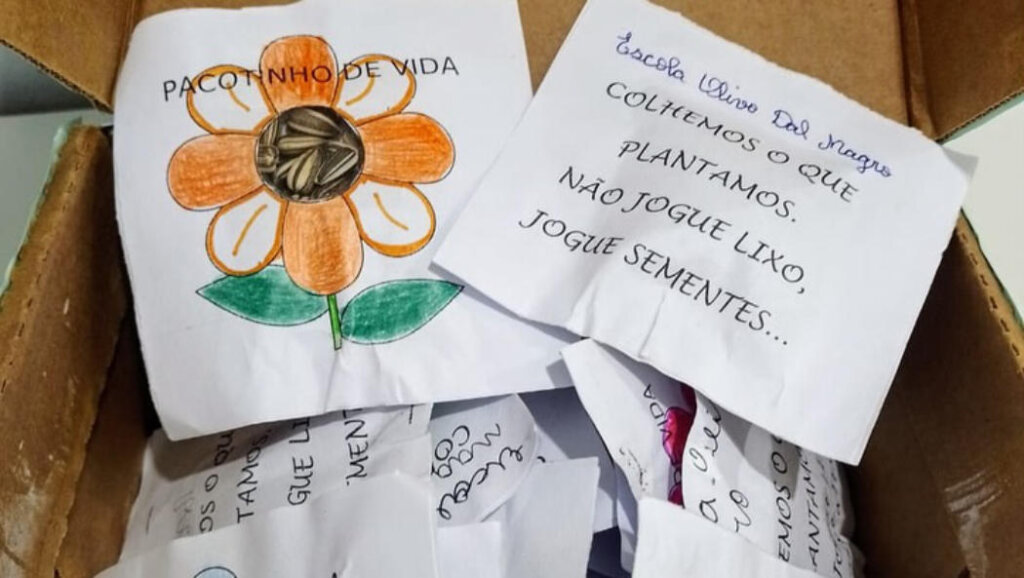 PACOTINHO DE VIDA
Escola Olivo Dal Magro
COLHEMOS O QUE
PLANTAMOS.
NÃO JOGUE LIXO,
JOGUE SEMENTES...
OS O QU
TAMOS.
GUE LI
MENT
EMOS O
LANTAM